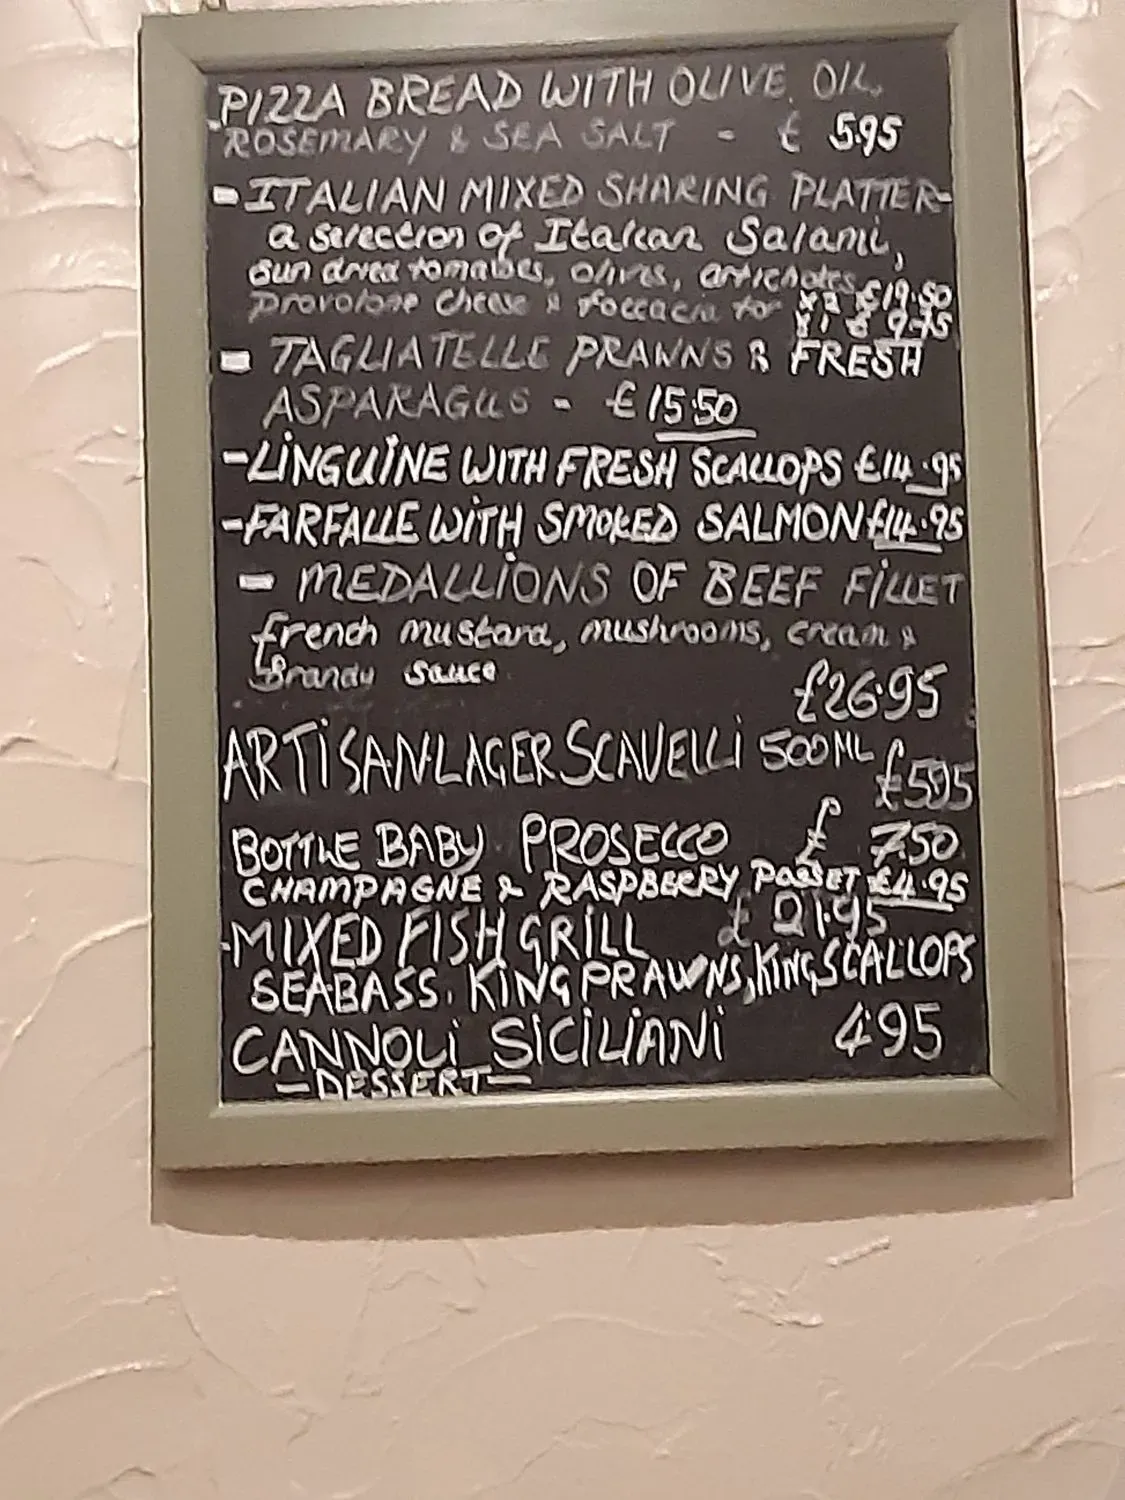 PIZZA BREAD WITH OLIVE OIL,
ROSEMARY & SEA SALT - £ 5.95
- ITALIAN MIXED SHARING PLATTER-
a selection of Italian Salami,
Sun dried tomatoes, olives, artichokes
provolone cheese & foccacia for x2 £19.50
x1 £ 9.75
- TAGLIATELLE PRAWNS & FRESH
ASPARAGUS - £15.50
-LINGUINE WITH FRESH SCALLOPS £14.95
-FARFALLE WITH SMOKED SALMON £14.95
- MEDALLIONS OF BEEF FILLET
french mustard, mushrooms, cream &
Brandy sauce
£26.95
ARTISAN LAGER SCAVELLI 500ML £5.95
BOTTLE BABY PROSECCO £ 7.50
CHAMPAGNE & RASPBERRY POSSET £4.95
-MIXED FISH GRILL £ 21.95
SEABASS, KING PRAWNS, KING SCALLOPS
CANNOLI SICILIANI 4.95
-DESSERT-